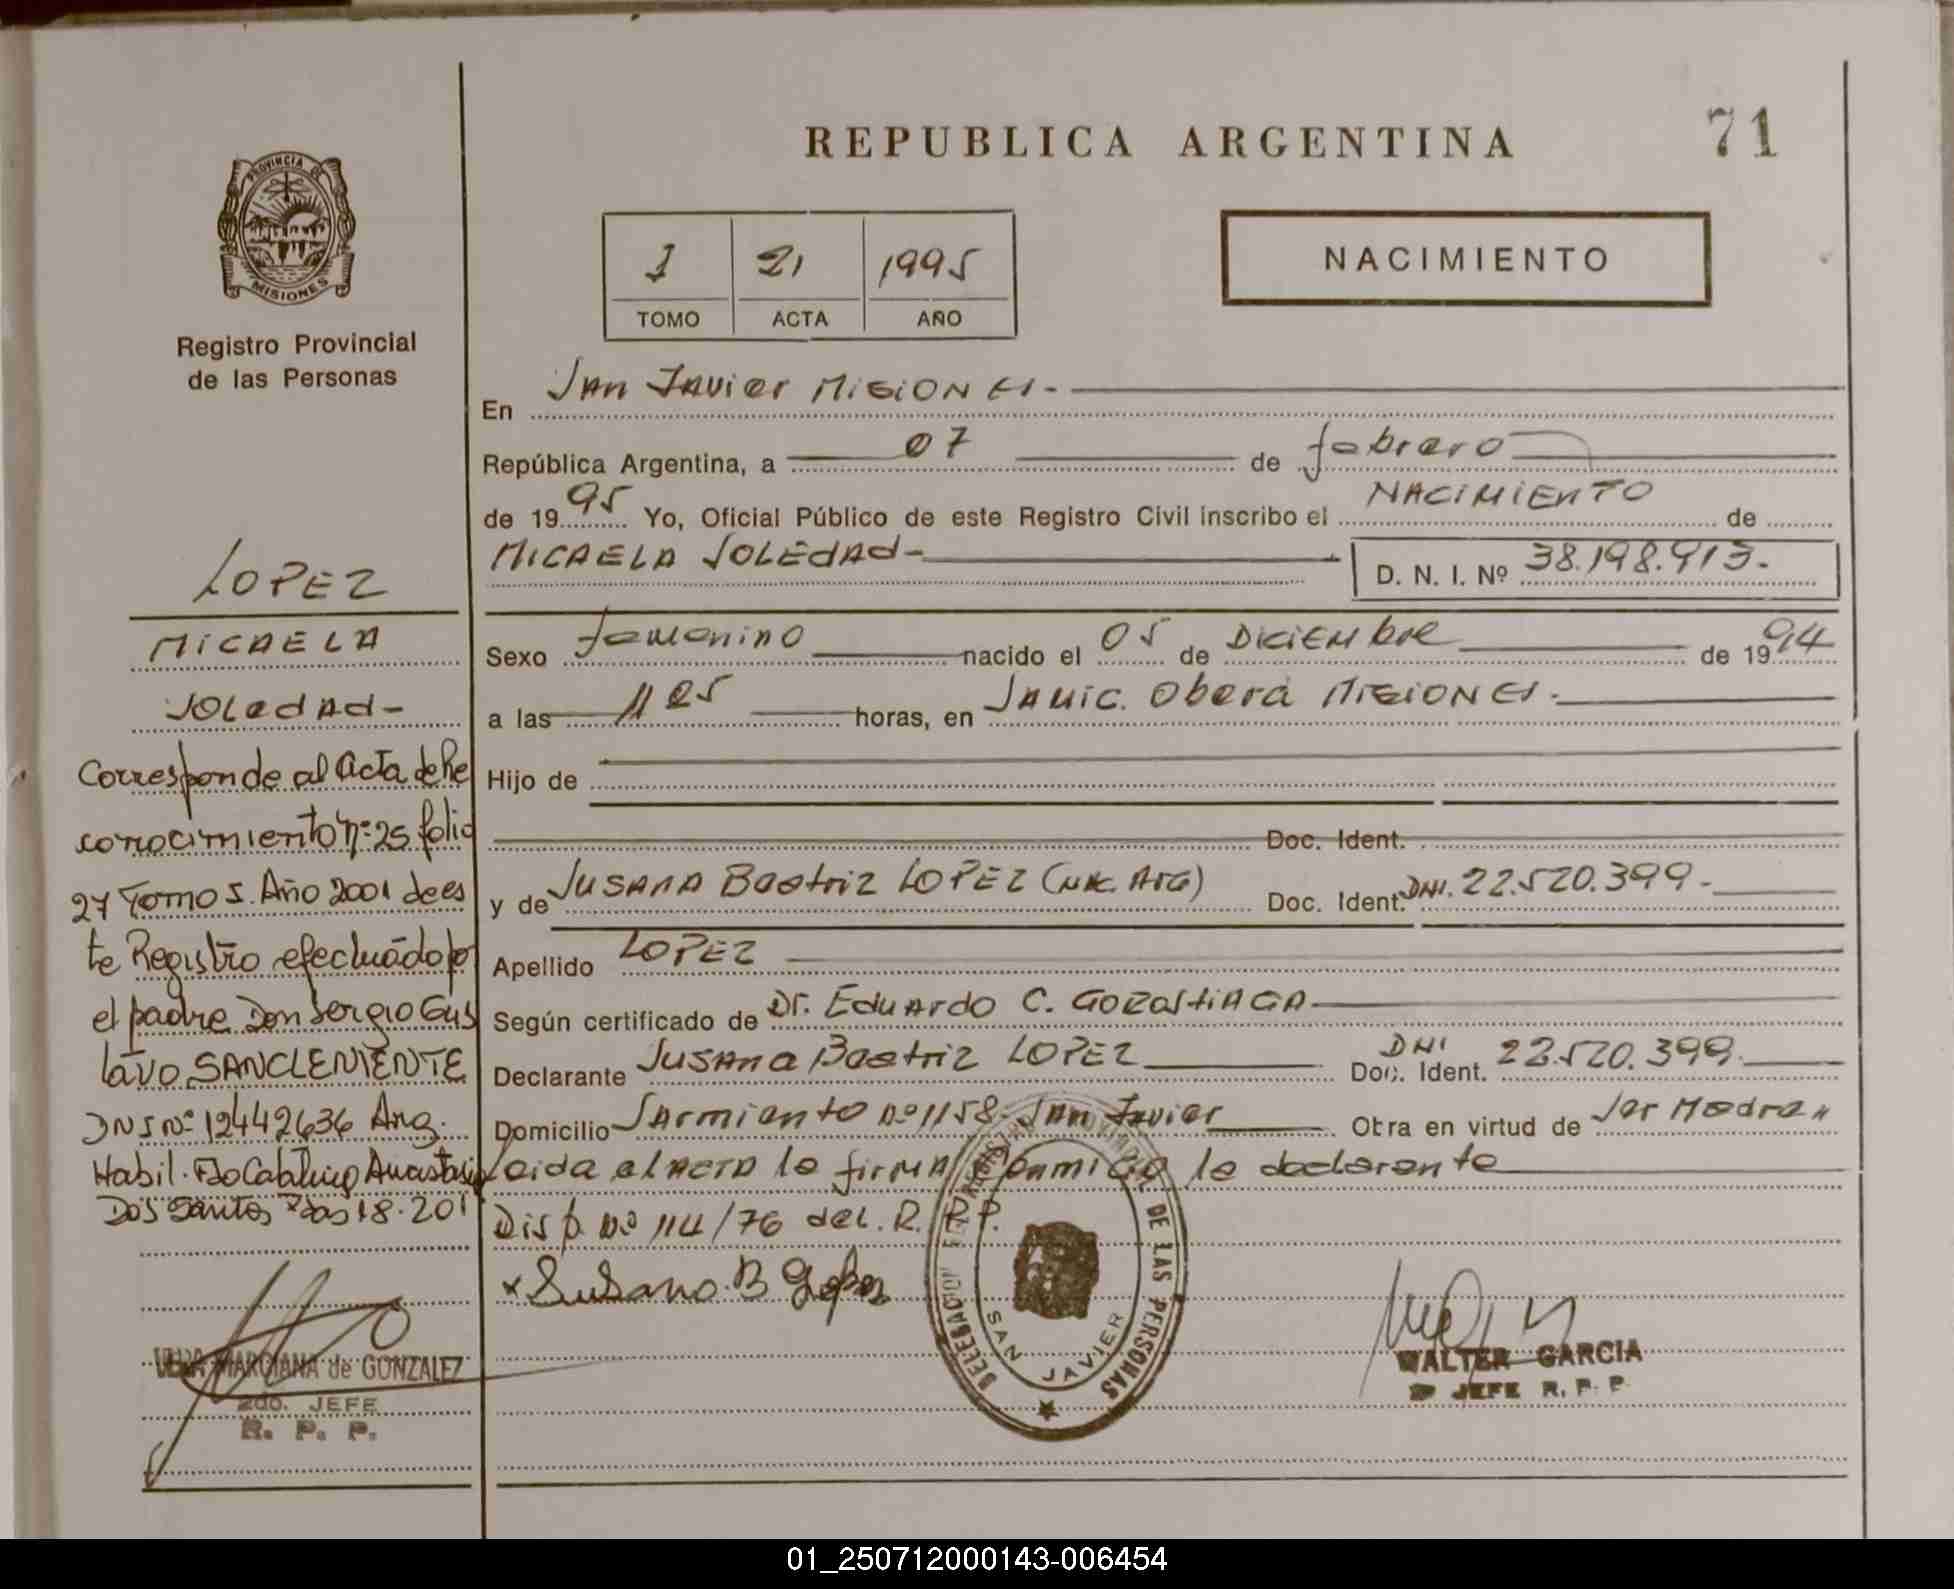 REPUBLICA ARGENTINA
71
PROVINCIA DE
MISIONES
Registro Provincial
de las Personas
I 21 1995
TOMO ACTA AÑO
NACIMIENTO
En San Javier Misiones.-
República Argentina, a 07 de febrero
de 1995 Yo, Oficial Público de este Registro Civil inscribo el NACIMIENTO de
MICAELA SOLEDAD-
D. N. I. Nº 38.198.913.-
Sexo femenino nacido el 05 de Diciembre de 1994
a las 11 05 horas, en Samic. Oberá Misiones.-
Hijo de
Doc. Ident.
y de Susana Beatriz LOPEZ (Nac. Arg) Doc. Ident. DNI. 22.520.399.-
Apellido LOPEZ
Según certificado de Dr. Eduardo C. Gorostiaga
Declarante Susana Beatriz LOPEZ Doc. Ident. DNI 22.520.399.
Domicilio Sarmiento nº 1158- San Javier Otra en virtud de Ser Madre
Leida el acta la firma conmigo la declarante
Disp. Nº 114/76 del. R. P. P.
x Susana B Lopez
DE LAS PERSONAS
SAN JAVIER
WALTER GARCIA
JEFE R. P. P.
LOPEZ
MICAELA
SOLEDAD-
Corresponde al acta de Re
conocimiento nº 25 folio
27 Tomo I. Año 2001 de es
te Registro efectuado po
el padre Don Sergio Gus
tavo SANCLEMENTE
DNI nº 12442636 Arg.
Habil. Fdo Catalino Anastasio
Dos Santos
MARCIANA de GONZALEZ
2do. JEFE
R. P. P.
01_250712000143-006454